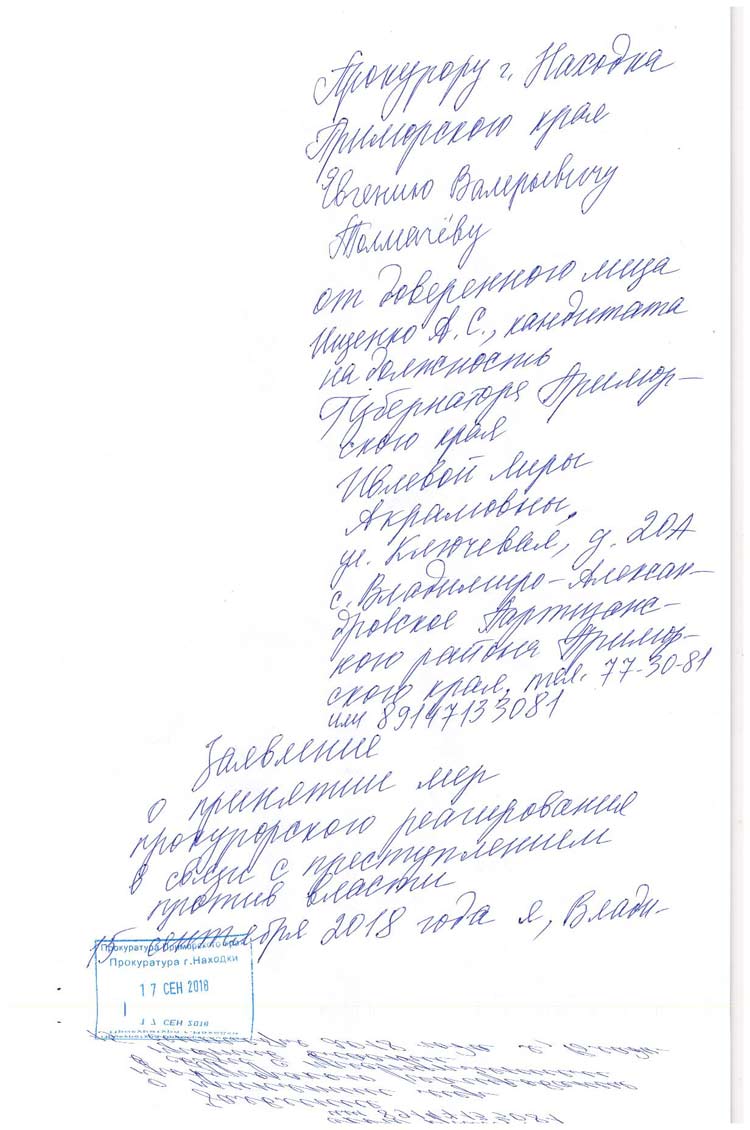 Прокурору г. Находка
Приморского края
Евгению Валерьевичу
Толмачёву
от доверенного лица
Ищенко А.С., кандидата
на должность
Губернатора Примор-
ского края
Ивлевой Миры
Акрамовны,
ул. Ключевая, д. 20А
с. Владимиро-Алексан-
дровское Партизанс-
кого района Примор-
ского края, тел. 77-30-81
или 89147133081
Заявление
о принятии мер
прокурорского реагирования
в связи с преступлением
против власти
15 сентября 2018 года я, Влади-
Прокуратура Приморского края
Прокуратура г.Находки
17 СЕН 2018